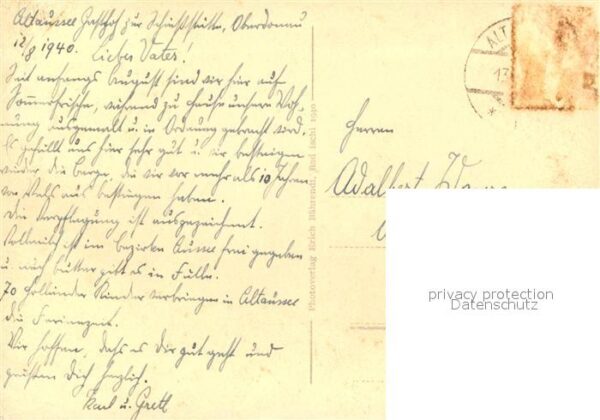 Altaussee Gasthof zur Schießstätte, Oberdonau
12/8 1940. Lieber Vater!
Seit anfangs August sind wir hier auf
Sommerfrische, während zu Hause unsere Woh-
nung ausgemalt u. in Ordnung gebracht wird.
Es gefällt uns hier sehr gut u. wir besteigen
wieder die Berge, die wir vor mehr als 10 Jahren
von Wels aus bestiegen haben.
Die Verpflegung ist ausgezeichnet.
Vollmilch ist im Bezirke Aussee frei gegeben
u. auch Butter gibt es in Fülle.
70 Holländer Kinder verbringen in Altaussee
die Ferienzeit.
Wir hoffen, dass es Dir gut geht und
grüßen Dich herzlich.
Karl u. Gretl
Photoverlag Erich Bährendt, Bad Ischl 1940
ALT
13
Herrn
Adalbert
privacy protection
Datenschutz